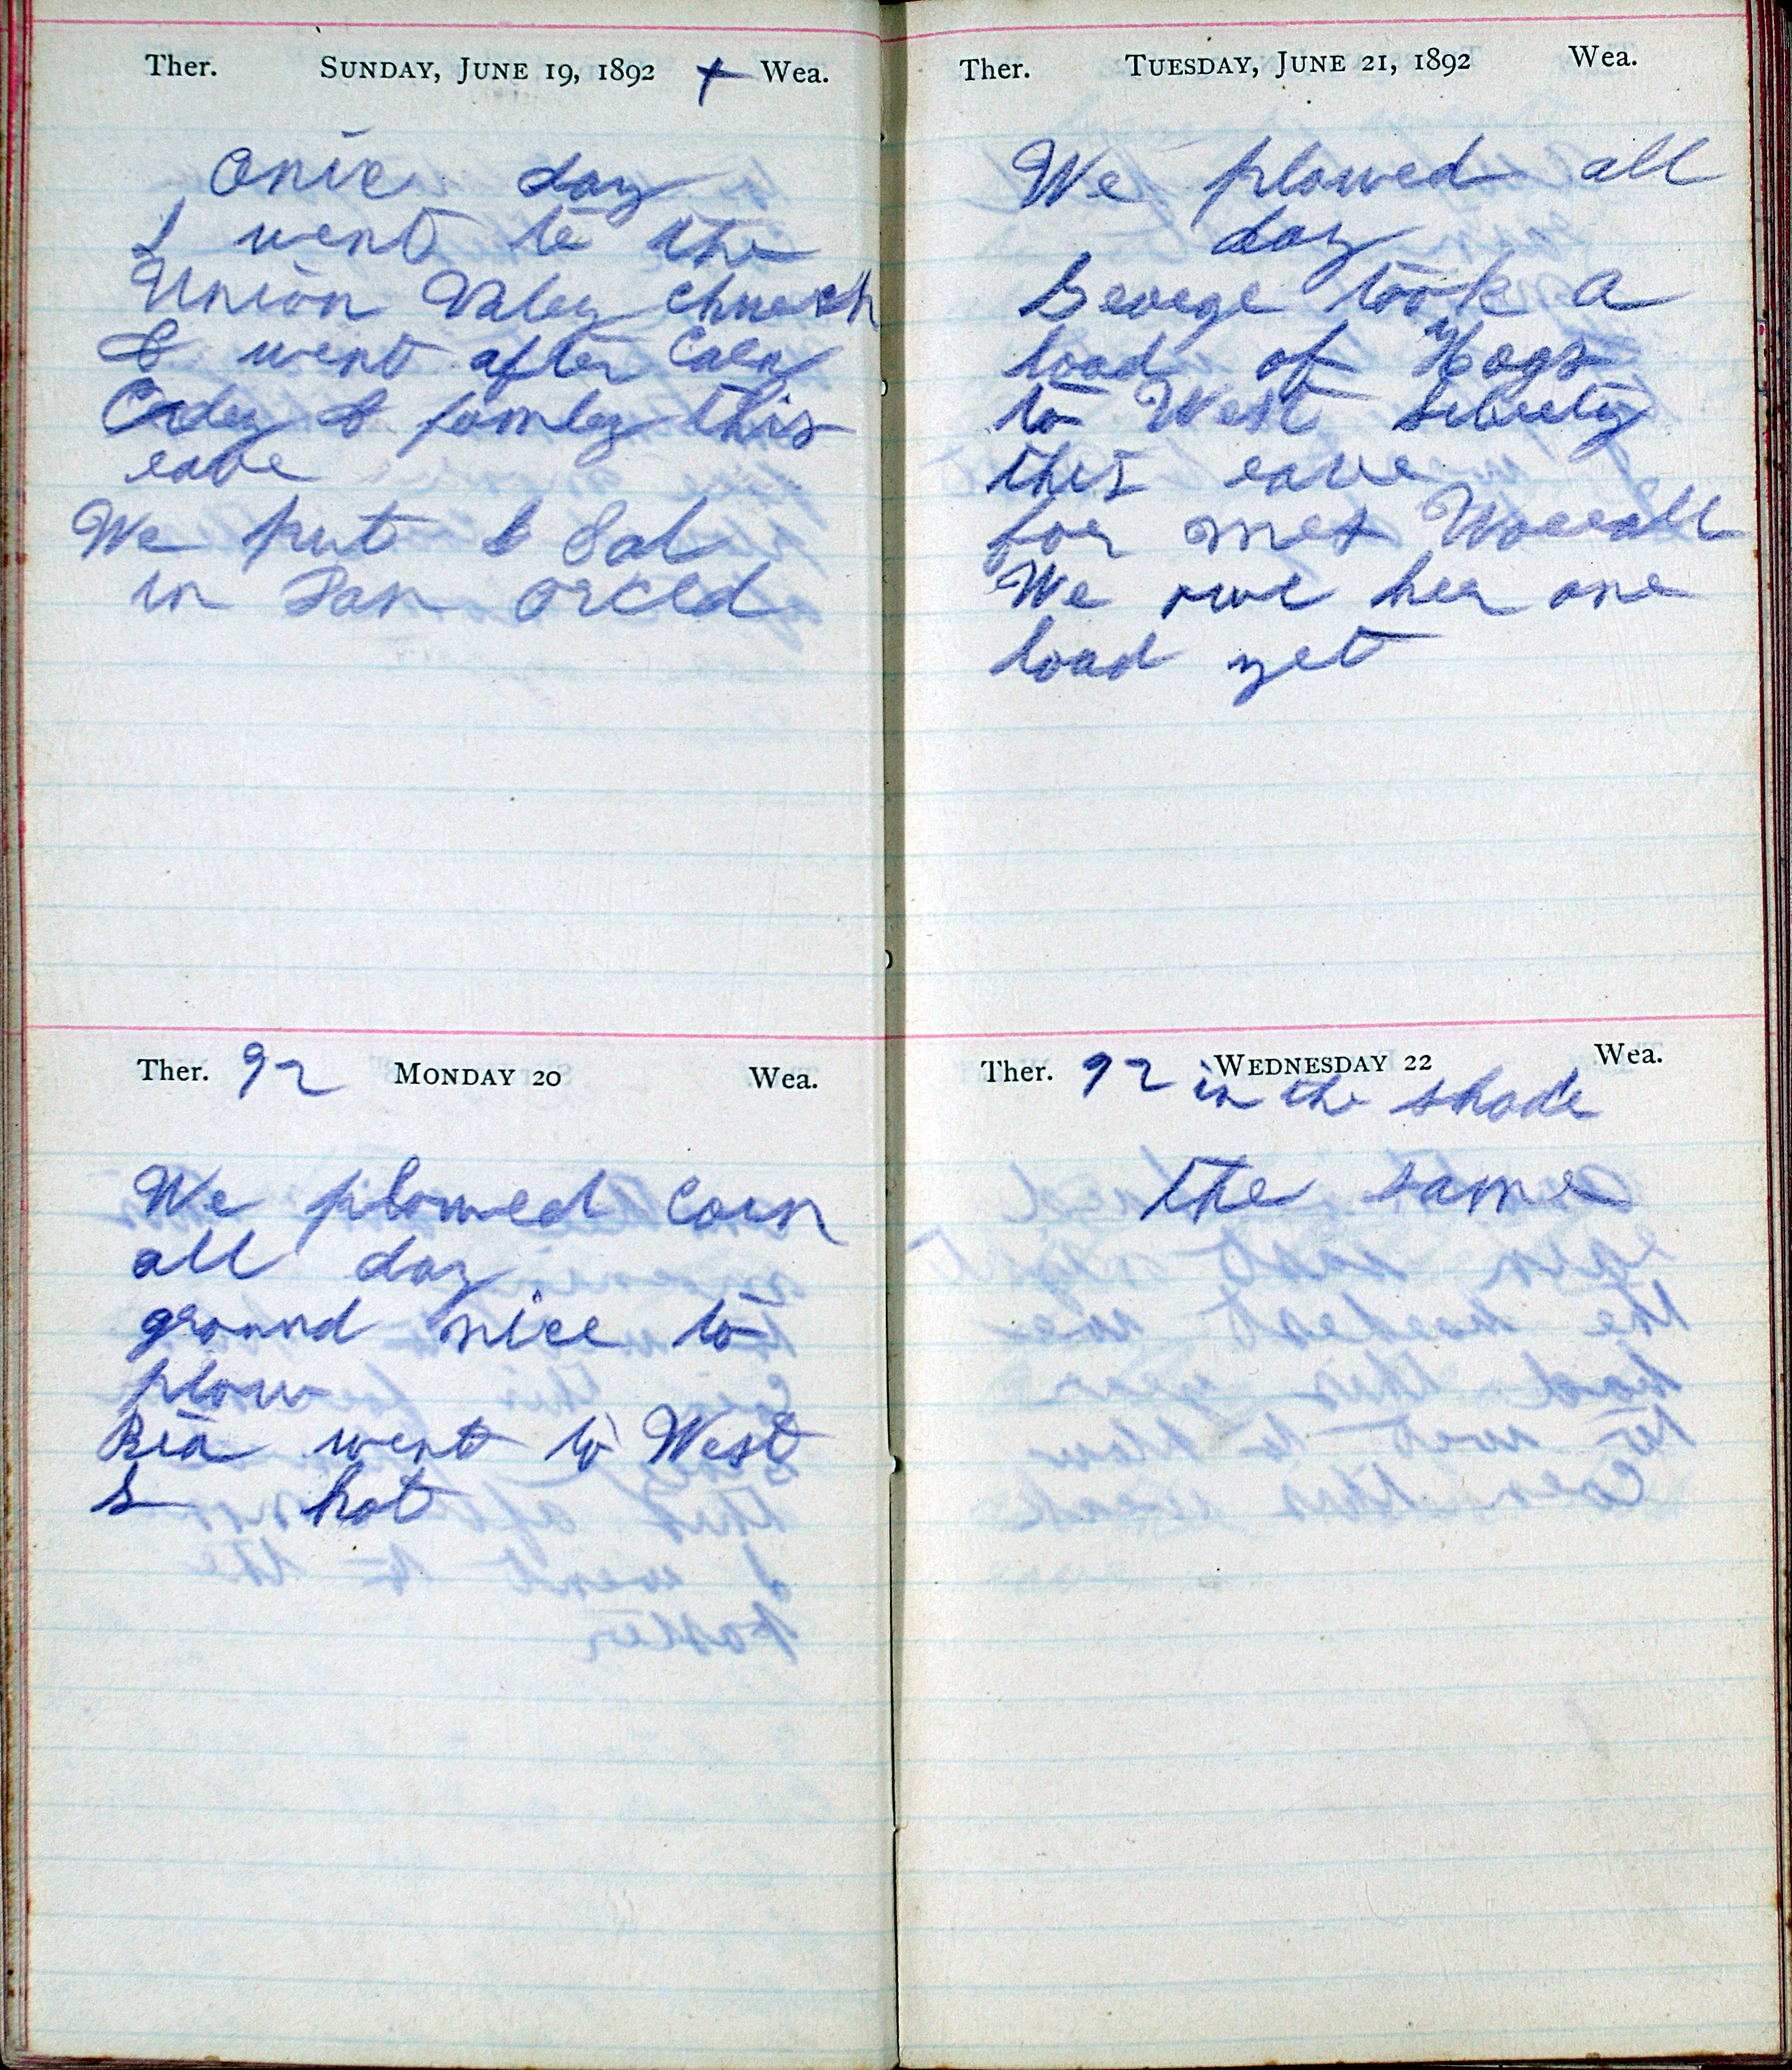 Ther. SUNDAY, JUNE 19, 1892 + Wea.
day
I went to the
Union Valey Church
& went after
& famley this
eave
We put & Sal
in Orced
Ther. 92 MONDAY 20 Wea.
We plowed Corn
all day
ground nice to
plow
went to West
L hot
Ther. TUESDAY, JUNE 21, 1892 Wea.
We plowed all
day
George took a
load of 4 Hogs
to West Liberty
this eave
for Mrs Worrall
We owe her one
load yet
Ther. 92 WEDNESDAY 22 Wea.
in the shade
the same